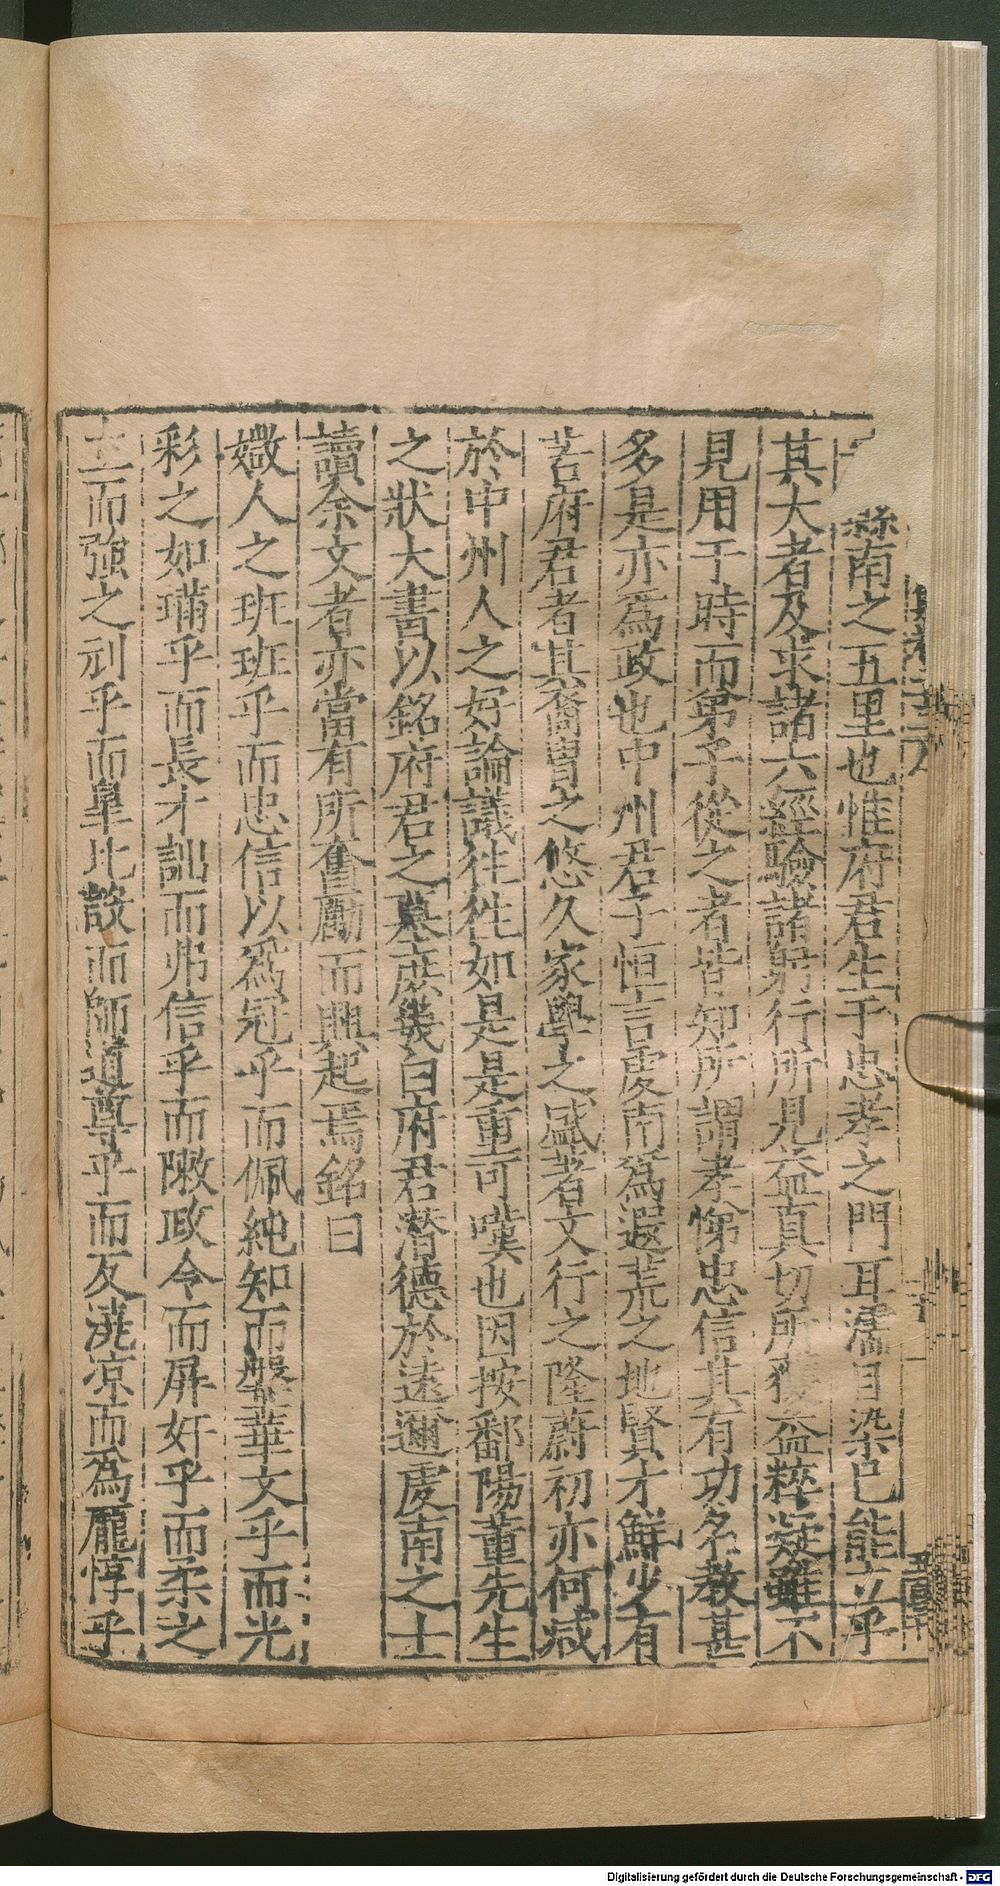 縣南之五里也惟府君生于忠孝之門耳濡目染已能立乎
其大者及求諸六經驗諸躬行所見益真切所益粹凝雖不
見用于時而弟子從之者皆知所謂孝悌忠信其有功名教甚
多是亦為政也中州君子恒言處南為遐荒之地賢才鮮少有
若府君者其裔胄之悠久家學之盛著文行之隆蔚初亦何减
於中州人之好論議往徃如是是重可嘆也因按鄱陽董先生
之狀大書以銘府君之墓庶幾白府君潜德於遠邇處南之士
讀余文者亦當有所奮勵而興起焉銘曰
媺人之班班乎而忠信以為冠乎而佩純知而鞶華文乎而光
彩之如璊乎而長才詘而弗信乎而敶政令而屏奸乎而柔之
而強之刓乎而皐比設而師道尊乎而反澆凉而為厖惇乎
Digitalisierung gefördert durch die Deutsche Forschungsgemeinschaft - DFG